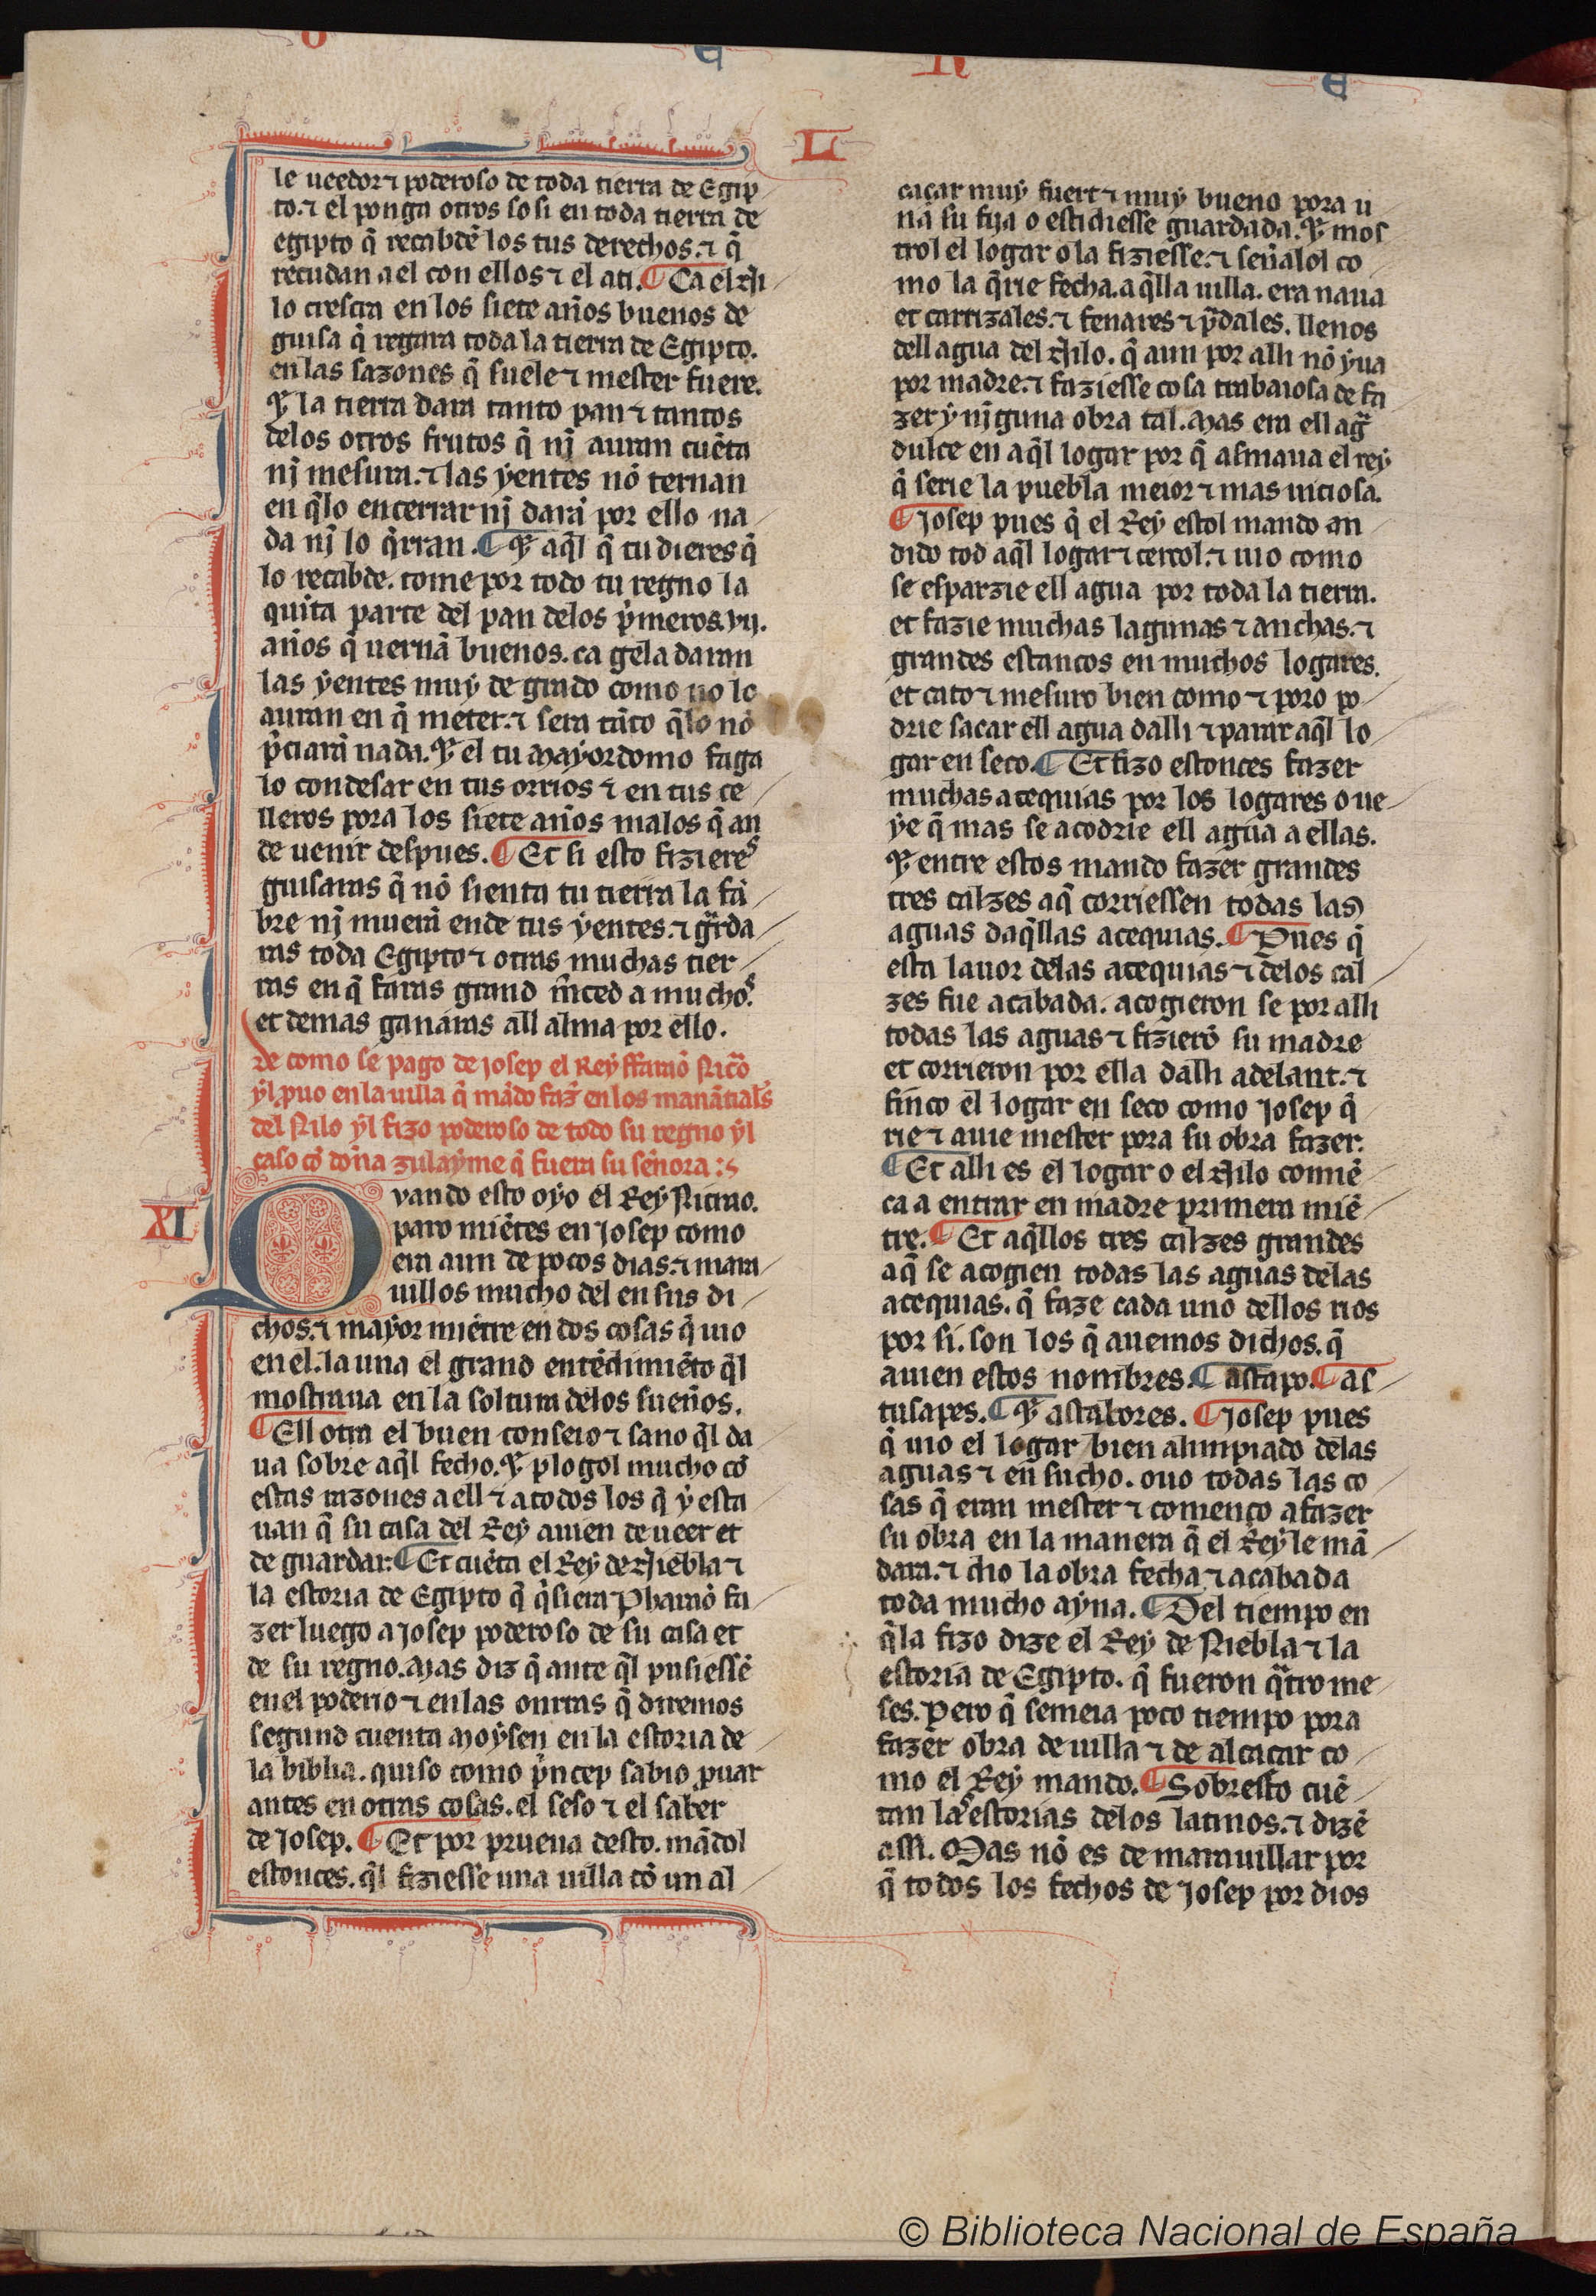 L
le ueedor ⁊ poderoso de toda tierra de Egip
to. ⁊ el ponga otros so si en toda tierra de
egipto q̃ recabdẽ los tus derechos. ⁊ q̃
recudan a el con ellos ⁊ el a ti. ¶ Ca el Ni
lo crescra en los siete años buenos de
guisa q̃ regara toda la tierra de Egipto.
en las sazones q̃ suele ⁊ mester fuere.
Et la tierra dara tanto pan ⁊ tantos
delos otros frutos q̃ nj̃ auran cuẽta
nj̃ mesura. ⁊ las yentes nõ ternan
en q̃lo encerrar nj̃ darã por ello na
da nj̃ lo q̃rran. ¶ Et aq̃l q̃ tu dieres q̃
lo recabde. tome por todo tu regno la
quita parte del pan delos p̃meros .vij.
años q̃ uernã buenos. ca gela daran
las yentes muy de grado como no lo
auran en q̃ meter. ⁊ sera tãto q̃lo nõ
p̃ciarã nada. Et el tu mayordomo faga
lo condesar en tus orrios ⁊ en tus ce
lleros pora los siete años malos q̃ an
de uenir despues. ¶ Et si esto fizieres
guisaras q̃ nõ sienta tu tierra la fã
bre nj̃ muerã ende tus yentes. ⁊ g̃rda
ras toda Egipto ⁊ otras muchas tier
ras en q̃ faras grand m̃ced a muchos.
et demas ganaras all alma por ello.
de como se pago de josep el Rey ffaraõ Nicr̃o
yl puo en la uilla q̃ mãdo faz̃ en los manãtiales
del Nilo yl fizo poderoso de todo su regno yl
caso cõ doña zulayme q̃ fuera su señora :
XI
Quando esto oyo el Rey Nicrao.
paro miẽtes en josep como
era aun de pocos dias. ⁊ mara
uillos mucho del en sus di
chos. ⁊ mayor miẽtre en dos cosas q̃ uio
en el. la una el grand entẽdimiẽto q̃l
mostraua en la soltura delos sueños.
¶ Ell otra el buen conseio ⁊ sano q̃l da
ua sobre aq̃l fecho. Et plogol mucho cõ
estas razones a ell ⁊ a todos los q̃ y esta
uan q̃ su casa del Rey auien de ueer et
de guardar. ¶ Et cuẽta el Rey de Niebla ⁊
la estoria de Egipto q̃ q̃siera Pharaõ fa
zer luego a josep poderoso de su casa et
de su regno. Mas diz q̃ ante q̃l pusiessẽ
en el poderio ⁊ en las onrras q̃ diremos
segund cuenta Moysen en la estoria de
la biblia. quiso como p̃ncep sabio puar
antes en otras cosas. el seso ⁊ el saber
de josep. ¶ Et por prueua desto. mãdol
estonces. q̃l fiziesse una uilla cõ un al
caçar muy fuert ⁊ muy bueno pora u
na su fija o estidiesse guardada. Et mos
trol el logar o la fiziesse. ⁊ señalol co
mo la q̃rie fecha. a q̃lla uilla. era naua
et carrizales. ⁊ fenares ⁊ p̃dales. llenos
dell agua del Nilo. q̃ aun por alli nõ yua
por madre. ⁊ faziesse cosa trabaiosa de fa
zer y nj̃guna obra tal. Mas era ell ag̃
dulce en aq̃l logar por q̃ asmaua el rey
q̃ serie la puebla meior ⁊ mas uiciosa.
¶ Josep pues q̃ el Rey estol mando an
dido tod aq̃l logar ⁊ cercol. ⁊ uio como
se esparzie ell agua por toda la tierra.
et fazie muchas lagunas ⁊ anchas. ⁊
grandes estancos en muchos logares.
et cato ⁊ mesuro bien como ⁊ poro po
drie sacar ell agua dalli ⁊ parar aq̃l lo
gar en seco. ¶ Et fizo estonces fazer
muchas acequias por los logares o ue
ye q̃ mas se acodrie ell agua a ellas.
Et entre estos mando fazer grandes
tres calzes aq̃ corriessen todas las
aguas daq̃llas acequias. ¶ Pues q̃
esta lauor delas acequias ⁊ delos cal
zes fue acabada. acogieron se por alli
todas las aguas ⁊ fizierõ su madre
et corrieron por ella dalli adelant. ⁊
finco el logar en seco como josep q̃
rie ⁊ auie mester pora su obra fazer.
¶ Et alli es el logar o el Nilo comiẽ
ca a entrar en madre primera miẽ
tre. ¶ Et aq̃llos tres calzes grandes
aq̃ se acogien todas las aguas delas
acequias. q̃ faze cada uno dellos rios
por si. son los q̃ auemos dichos. q̃
auien estos nombres. ¶ astapo. ¶ as
tusapes. ¶ Et astabores. ¶ Josep pues
q̃ uio el logar bien alimpiado delas
aguas ⁊ en sucho. ouo todas las co
sas q̃ eran mester ⁊ começo a fazer
su obra en la manera q̃ el Rey le mã
dara. ⁊ dio la obra fecha ⁊ acabada
toda mucho ayna. ¶ Del tiempo en
q̃la fizo dize el Rey de Niebla ⁊ la
estoria de Egipto. q̃ fueron q̃tro me
ses. Pero q̃ semeia poco tiempo pora
fazer obra de uilla ⁊ de alcaçar co
mo el Rey mando. ¶ Sobresto cuẽ
tan las estorias delos latinos. ⁊ dizẽ
assi. Mas nõ es de marauillar por
q̃ todos los fechos de josep por dios
© Biblioteca Nacional de España